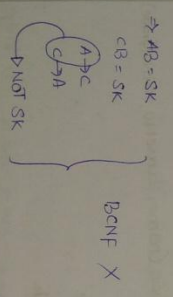 ⇒ AB = SK
CB = SK
A→C
C→A
→ NOT SK
BCNF X